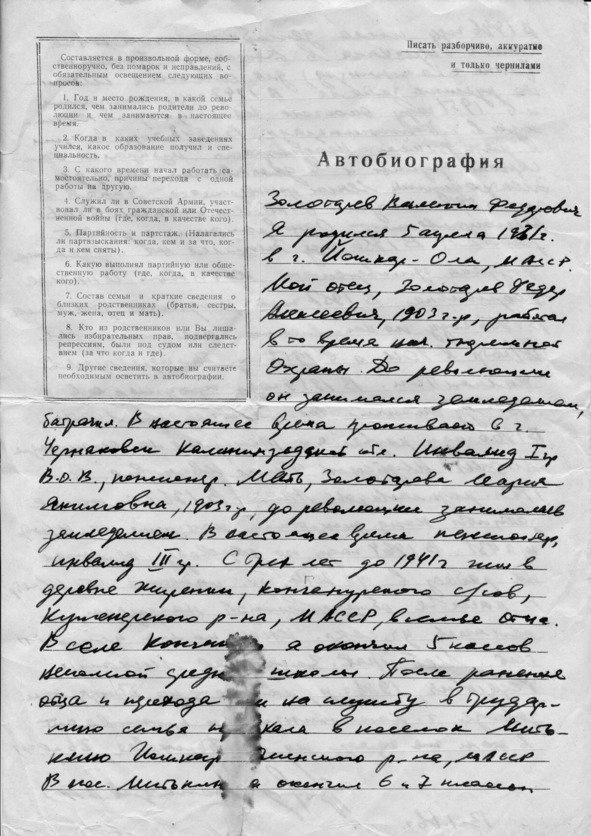 Писать разборчиво, аккуратно
и только чернилами
Составляется в произвольной форме, соб-
ственноручно, без помарок и исправлений, с
обязательным освещением следующих во-
просов:
1. Год и место рождения, в какой семье
родился, чем занимались родители до рево-
люции и чем занимаются в настоящее
время.
2. Когда и в каких учебных заведениях
учился, какое образование получил и спе-
циальность.
3. С какого времени начал работать са-
мостоятельно, причины перехода с одной
работы на другую.
4. Служил ли в Советской Армии, участ-
вовал ли в боях гражданской или Отечест-
венной войны (где, когда, в качестве кого).
5. Партийность и партстаж. (Налагались
ли партвзыскания: когда, кем и за что, ког-
да и кем сняты).
6. Какую выполнял партийную или обще-
ственную работу (где, когда, в качестве
кого).
7. Состав семьи и краткие сведения о
близких родственниках (братья, сестры,
муж, жена, отец и мать).
8. Кто из родственников или Вы лиша-
лись избирательных прав, подвергались
репрессиям, были под судом или следст-
вием (за что когда и где).
9. Другие сведения, которые вы считаете
необходимым осветить в автобиографии.
Автобиография
Золотарев Валентин Федорович
Я родился 5 апреля 1931г.
в г. Йошкар-Ола, МАССР.
Мой отец, Золотарев Федор
Алексеевич, 1903 г.р., работал
в то время нач. тюремной
Охраны. До революции
он занимался земледелием,
батрачил. В настоящее время проживает в г.
Черняховск Калининградской обл. Инвалид I гр
В.О.В., пенсионер. Мать, Золотарева Мария
Якимовна, 1903 г.р., до революции занималась
земледелием. В настоящее время пенсионер,
инвалид III гр. С трех лет до 1941г жил в
деревне с/сов,
Куженерского р-на, МАССР, в семье отца.
В селе я окончил 5 классов
неполной средн школы. После ранения
отца и перехода на службу в трудар-
мию семья в поселок Мить-
кино Йошкар р-на, МАССР
В пос. Митькин я окончил 6 и 7 классы